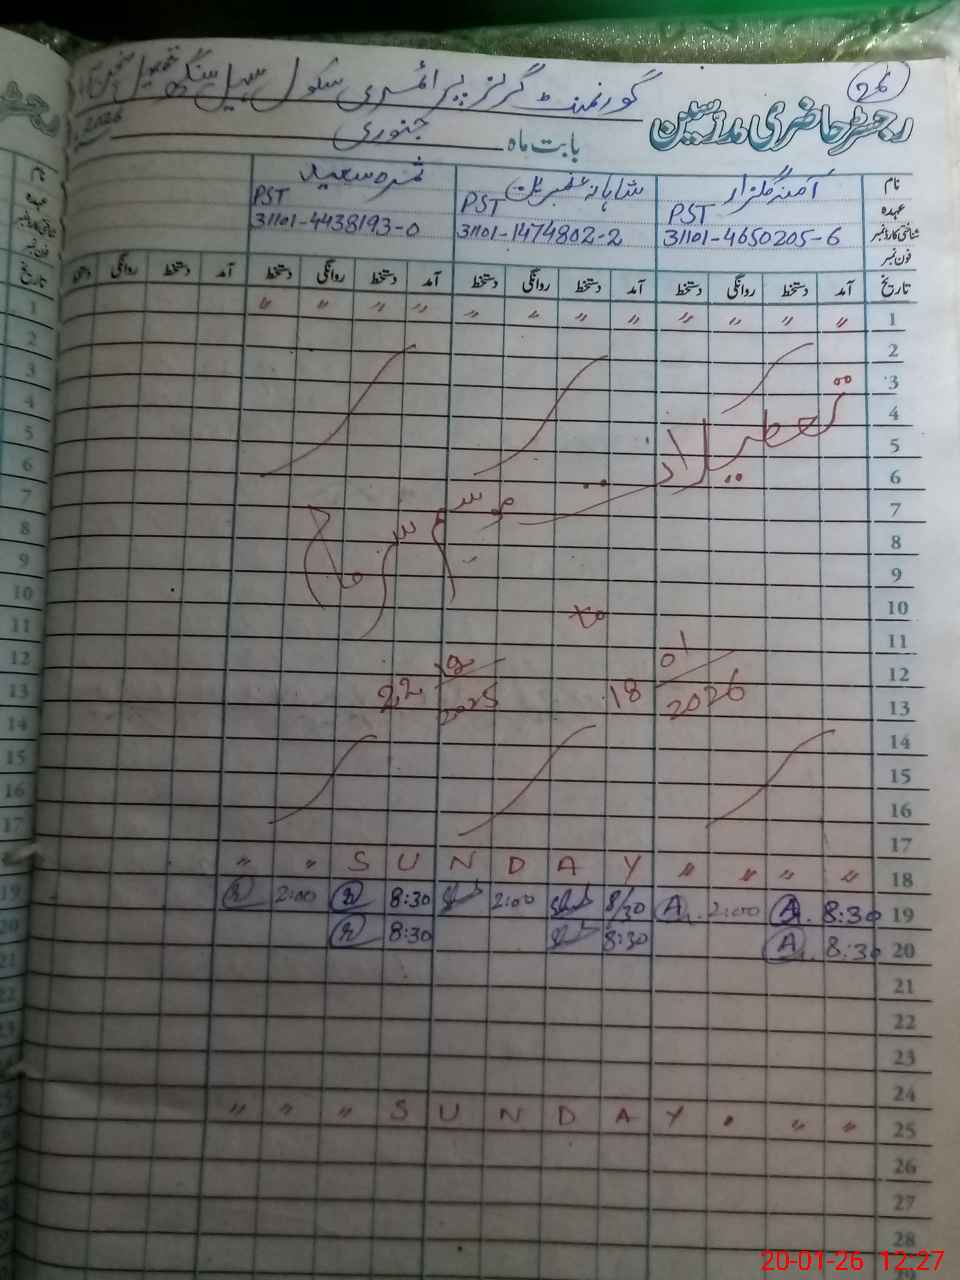 26
رجسٹر حاضری مدرسین
گورنمنٹ گرلز پرائمری سکول
بابت ماہ جنوری 2026
نام آمنہ گلزار شاہانہ عنبرین ثمرہ سعید
عہدہ PST PST PST
شناختی کارڈ نمبر 31101-4650205-6 31101-1474802-2 31101-4438193-0
فون نمبر
تاریخ آمد دستخط روانگی دستخط آمد دستخط روانگی دستخط آمد دستخط روانگی دستخط آمد دستخط روانگی دستخط
1 〃 〃 〃 〃 〃 〃 〃 〃 〃 〃 〃 〃
2
3
4
5
6
تعطیلات موسم سرما
7
8
9
10
11
to
12
22/12/2025 18/01/2026
13
14
15
16
17
18 〃 〃 S U N D A Y 〃 〃 〃 〃
19 8:30 A. 2:00 A. 8/30 2:00 8:30 2:00
20 8:30 A. 8:30 8:30
21
22
23
24
25 〃 〃 〃 S U N D A Y 〃 〃 〃
26
27
28
20-01-26 12:27